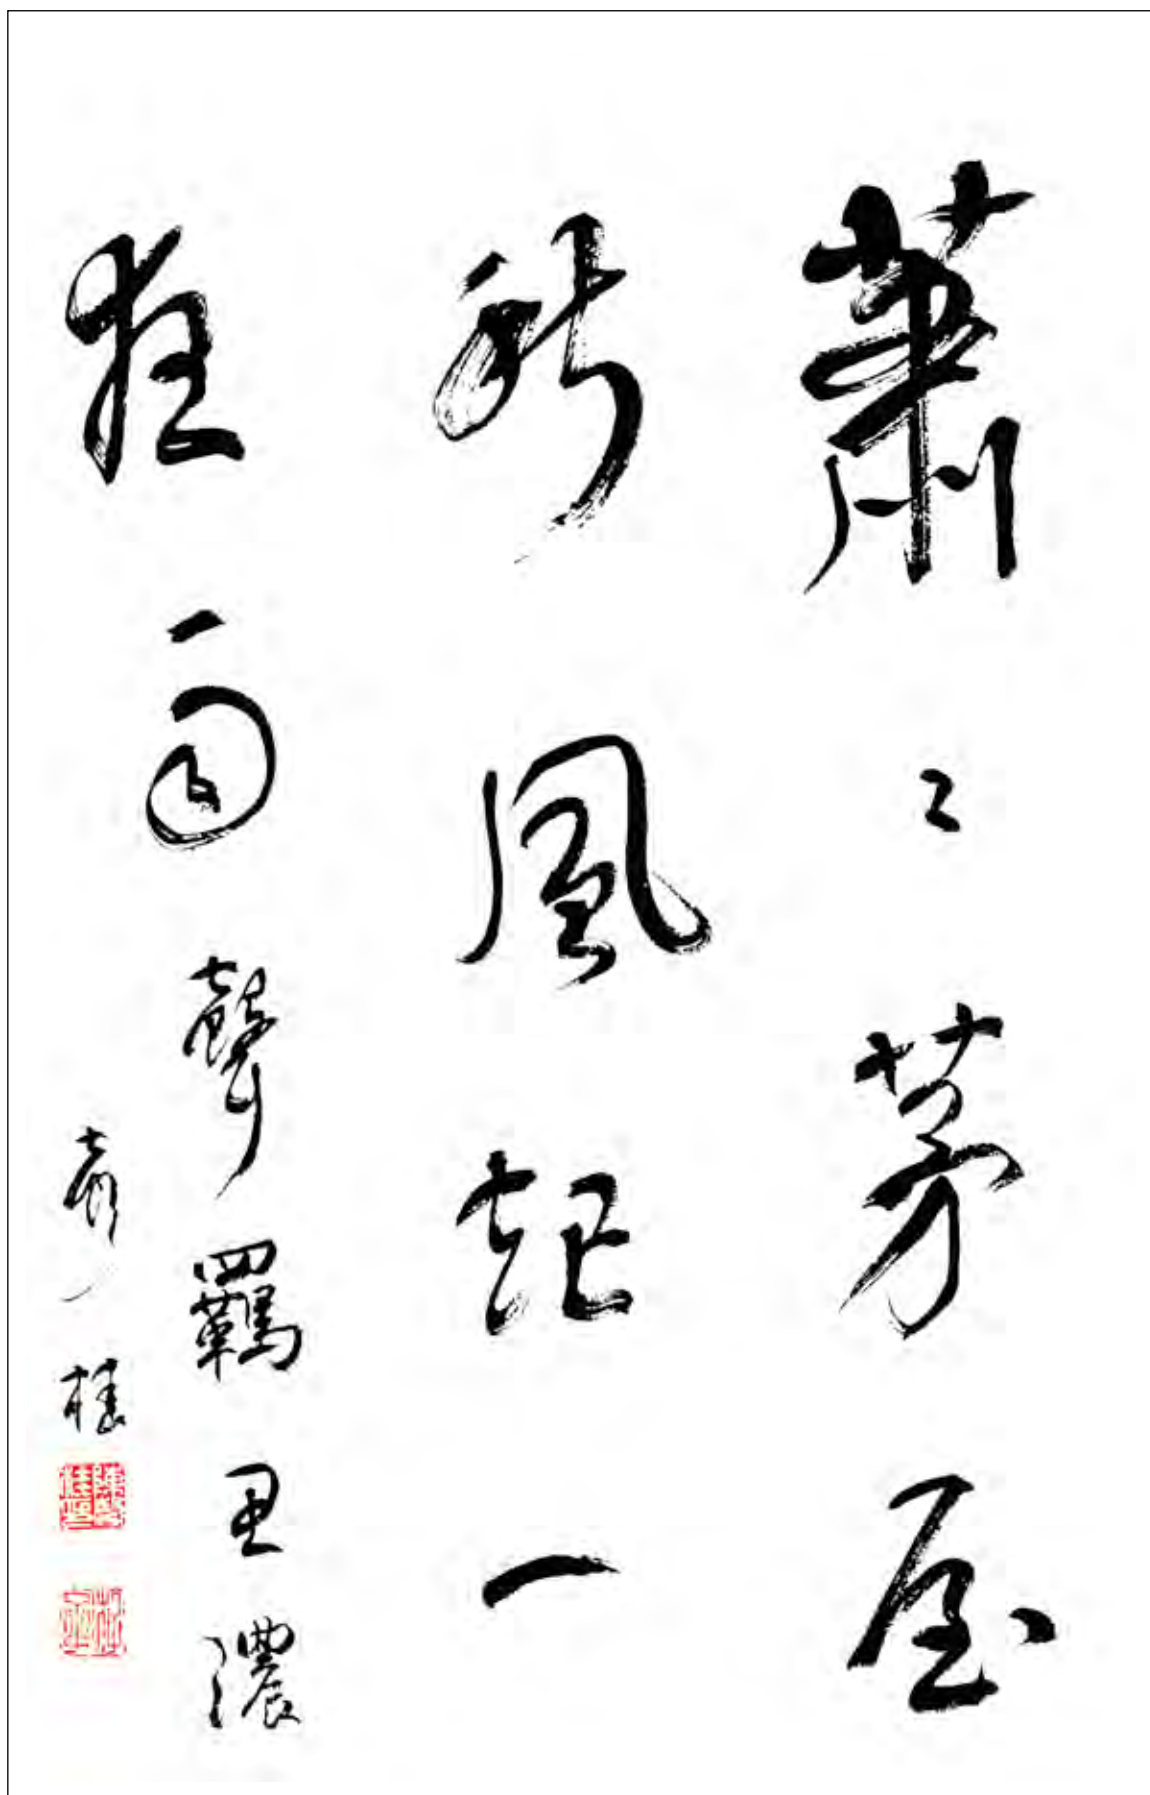 蕭々茅屋
秋風起一
夜雨聲羈思濃